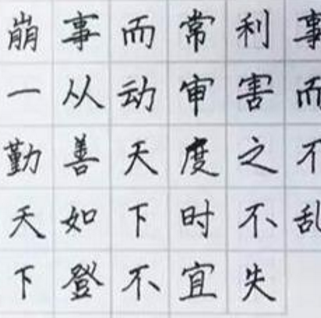 事而不乱
利害之不失
常审度时宜
而动天下不
事从善如登
崩一勤天下